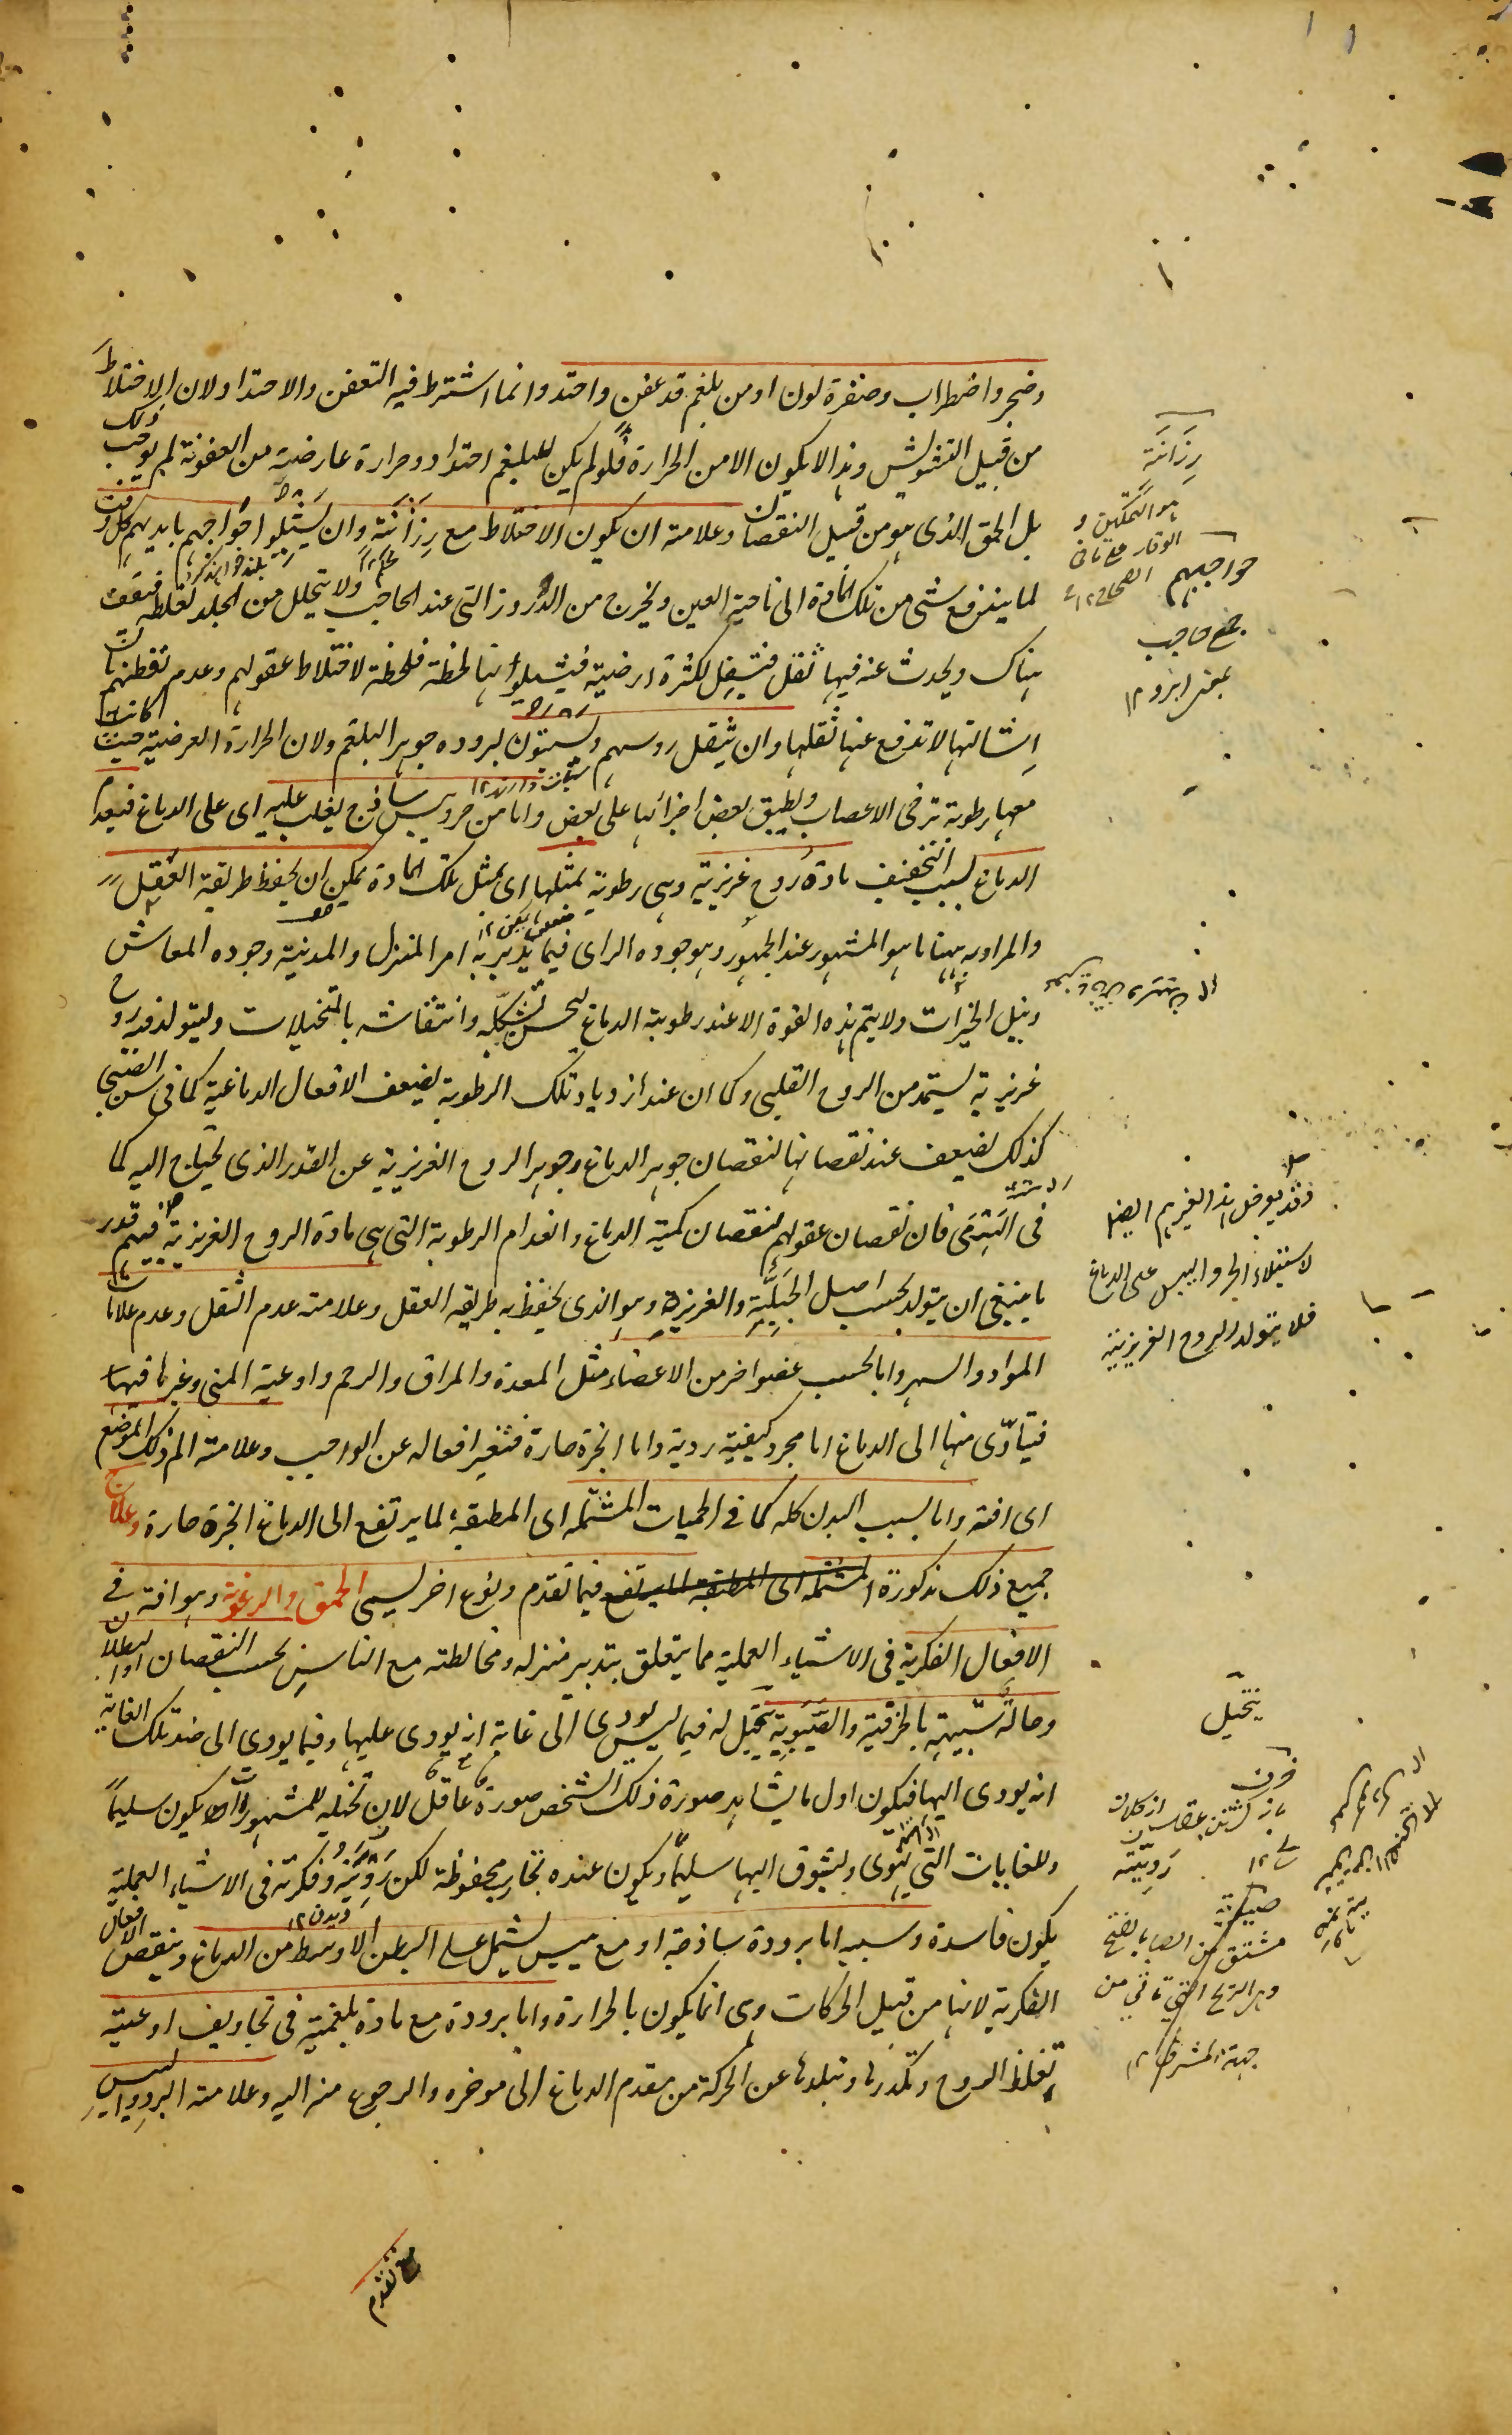 وضجر واضطراب وصفرة لون او من بلغم قد عفن واحتد وانما اشترط فيه التعفن والاحتداد لان الاختلاط
من قبيل التشويش وهذا لا يكون الا من الحرارة فلو لم يكن للبلغم احتداد وحرارة عارضية من العفونة لم يوجب ذلك
بل الحمق الذى هو من قبيل النقصان وعلامته ان يكون الاختلاط مع رزانة وان يشيلوا حواجبهم بايديهم كل وقت
لما يندفع شئ من تلك المادة الى ناحية العين ويخرج من الدروز التى عند الحاجب ولا يتحلل من الجلد لغلظه فيقف
هناك ويحدث عنه فيها ثقل فتسفل لكثرة ارضيته فيشيلوانها لحظة فلحظة لاختلاط عقولهم وعدم تفطنهم بان
اشالتها لا تدفع عنها ثقلها وان يثقل روسهم ويسبتون لبروده جوهر البلغم ولان الحرارة العرضية حيث كانت
معها رطوبة ترخى الاعصاب ويطبق بعض اجزائها على بعض واما من حر ويبس ساذج يغلب عليه اى على الدماغ فيعدم
الدماغ بسبب التجفيف مادة روح غريزية وهى رطوبة بمثلها اى بمثل تلك المادة يمكن ان يحفظ طريقة العقل
والمراد به ههنا ما هو المشهور عند الجمهور وهو جوده الراى فيما يدبر به امر المنزل والمدنية وجوده المعاش
ونيل الخيرات ولا يتم هذه القوة الا عند رطوبة الدماغ ليحسن تشكله وانتقاشه بالتخيلات وليتولد فيه روح
غريزية يستمد من الروح القلبى وكما ان عند ازدياد تلك الرطوبة يضعف الافعال الدماغية كما فى سن الصبى
كذلك يضعف عند نقصانها لنقصان جوهر الدماغ وجوهر الروح الغريزية عن القدر الذى يحتاج اليه كما
فى اليتمى فان نقصان عقولهم لنقصان كمية الدماغ وانعدام الرطوبة التى هى مادة الروح الغريزية فيهم قدر
ما ينبغى ان يتولد بحسب اصل الجبلية والغريزة وهو الذى يحفظ به طريقه العقل وعلامته عدم الثقل وعدم علامات
المواد والسهر واما بحسب عضو اخر من الاعضاء مثل المعدة والمراق والرحم واوعية المنى وغيرها فيها
فيتادى منها الى الدماغ اما مجرد كيفية ردية واما ابخرة حارة فتغير افعاله عن الواجب وعلامته الم ذلك الموضع
اى افته واما بسبب البدن كله كما فى الحميات المشتمله اى المطبقة لما يرتفع الى الدماغ ابخرة حارة وعلاج
جميع ذلك مذكورة فيما تقدم ونوع اخر يسمى الحمق والرعونة وهو افة فى
الافعال الفكرية فى الاشياء العملية مما يتعلق بتدبير منزله ومخالطته مع الناس بحسب النقصان او البطلان
وحاله شبيهة بالخرقية والصبوية يتخيل له فيما ليس يودى الى غاية انه يودى عليها وفيما يودى الى ضد تلك الغاية
انه يودى اليها فيكون اول ما يشاهد صورة ذلك الشخص صورة عاقل لان تخيله للمشهورات يكون سليما
وللغايات التى يهوى ويشوق اليها سليما ويكون عنده تجارب محفوظة لكن رويته وفكرته فى الاشياء العملية
يكون فاسدة وسببه اما برودة ساذجة او مع يبس يشتمل على البطن الاوسط من الدماغ وينقص الافعال
الفكرية لانها من قبيل الحركات وهى انما يكون بالحرارة واما برودة مع مادة بلغمية فى تجاويف اوعيته
تغلظ الروح وتكدرها وتبلدها عن الحركة من مقدم الدماغ الى موخره والرجوع منه اليه وعلامته البرد واليبس
رزانة
هو التمكين و
الوقار
حواجبهم
جمع حاجب
بمعنى ابرو ١٢
لاستيلاء الحر واليبس على الدماغ
فلا يتولد الروح الغريزية
يتخيل
خرف
رويته
مشتق من الصبا بالفتح
جهة المشرق ١٢
تقدم